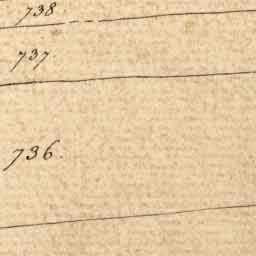 738
737
736.